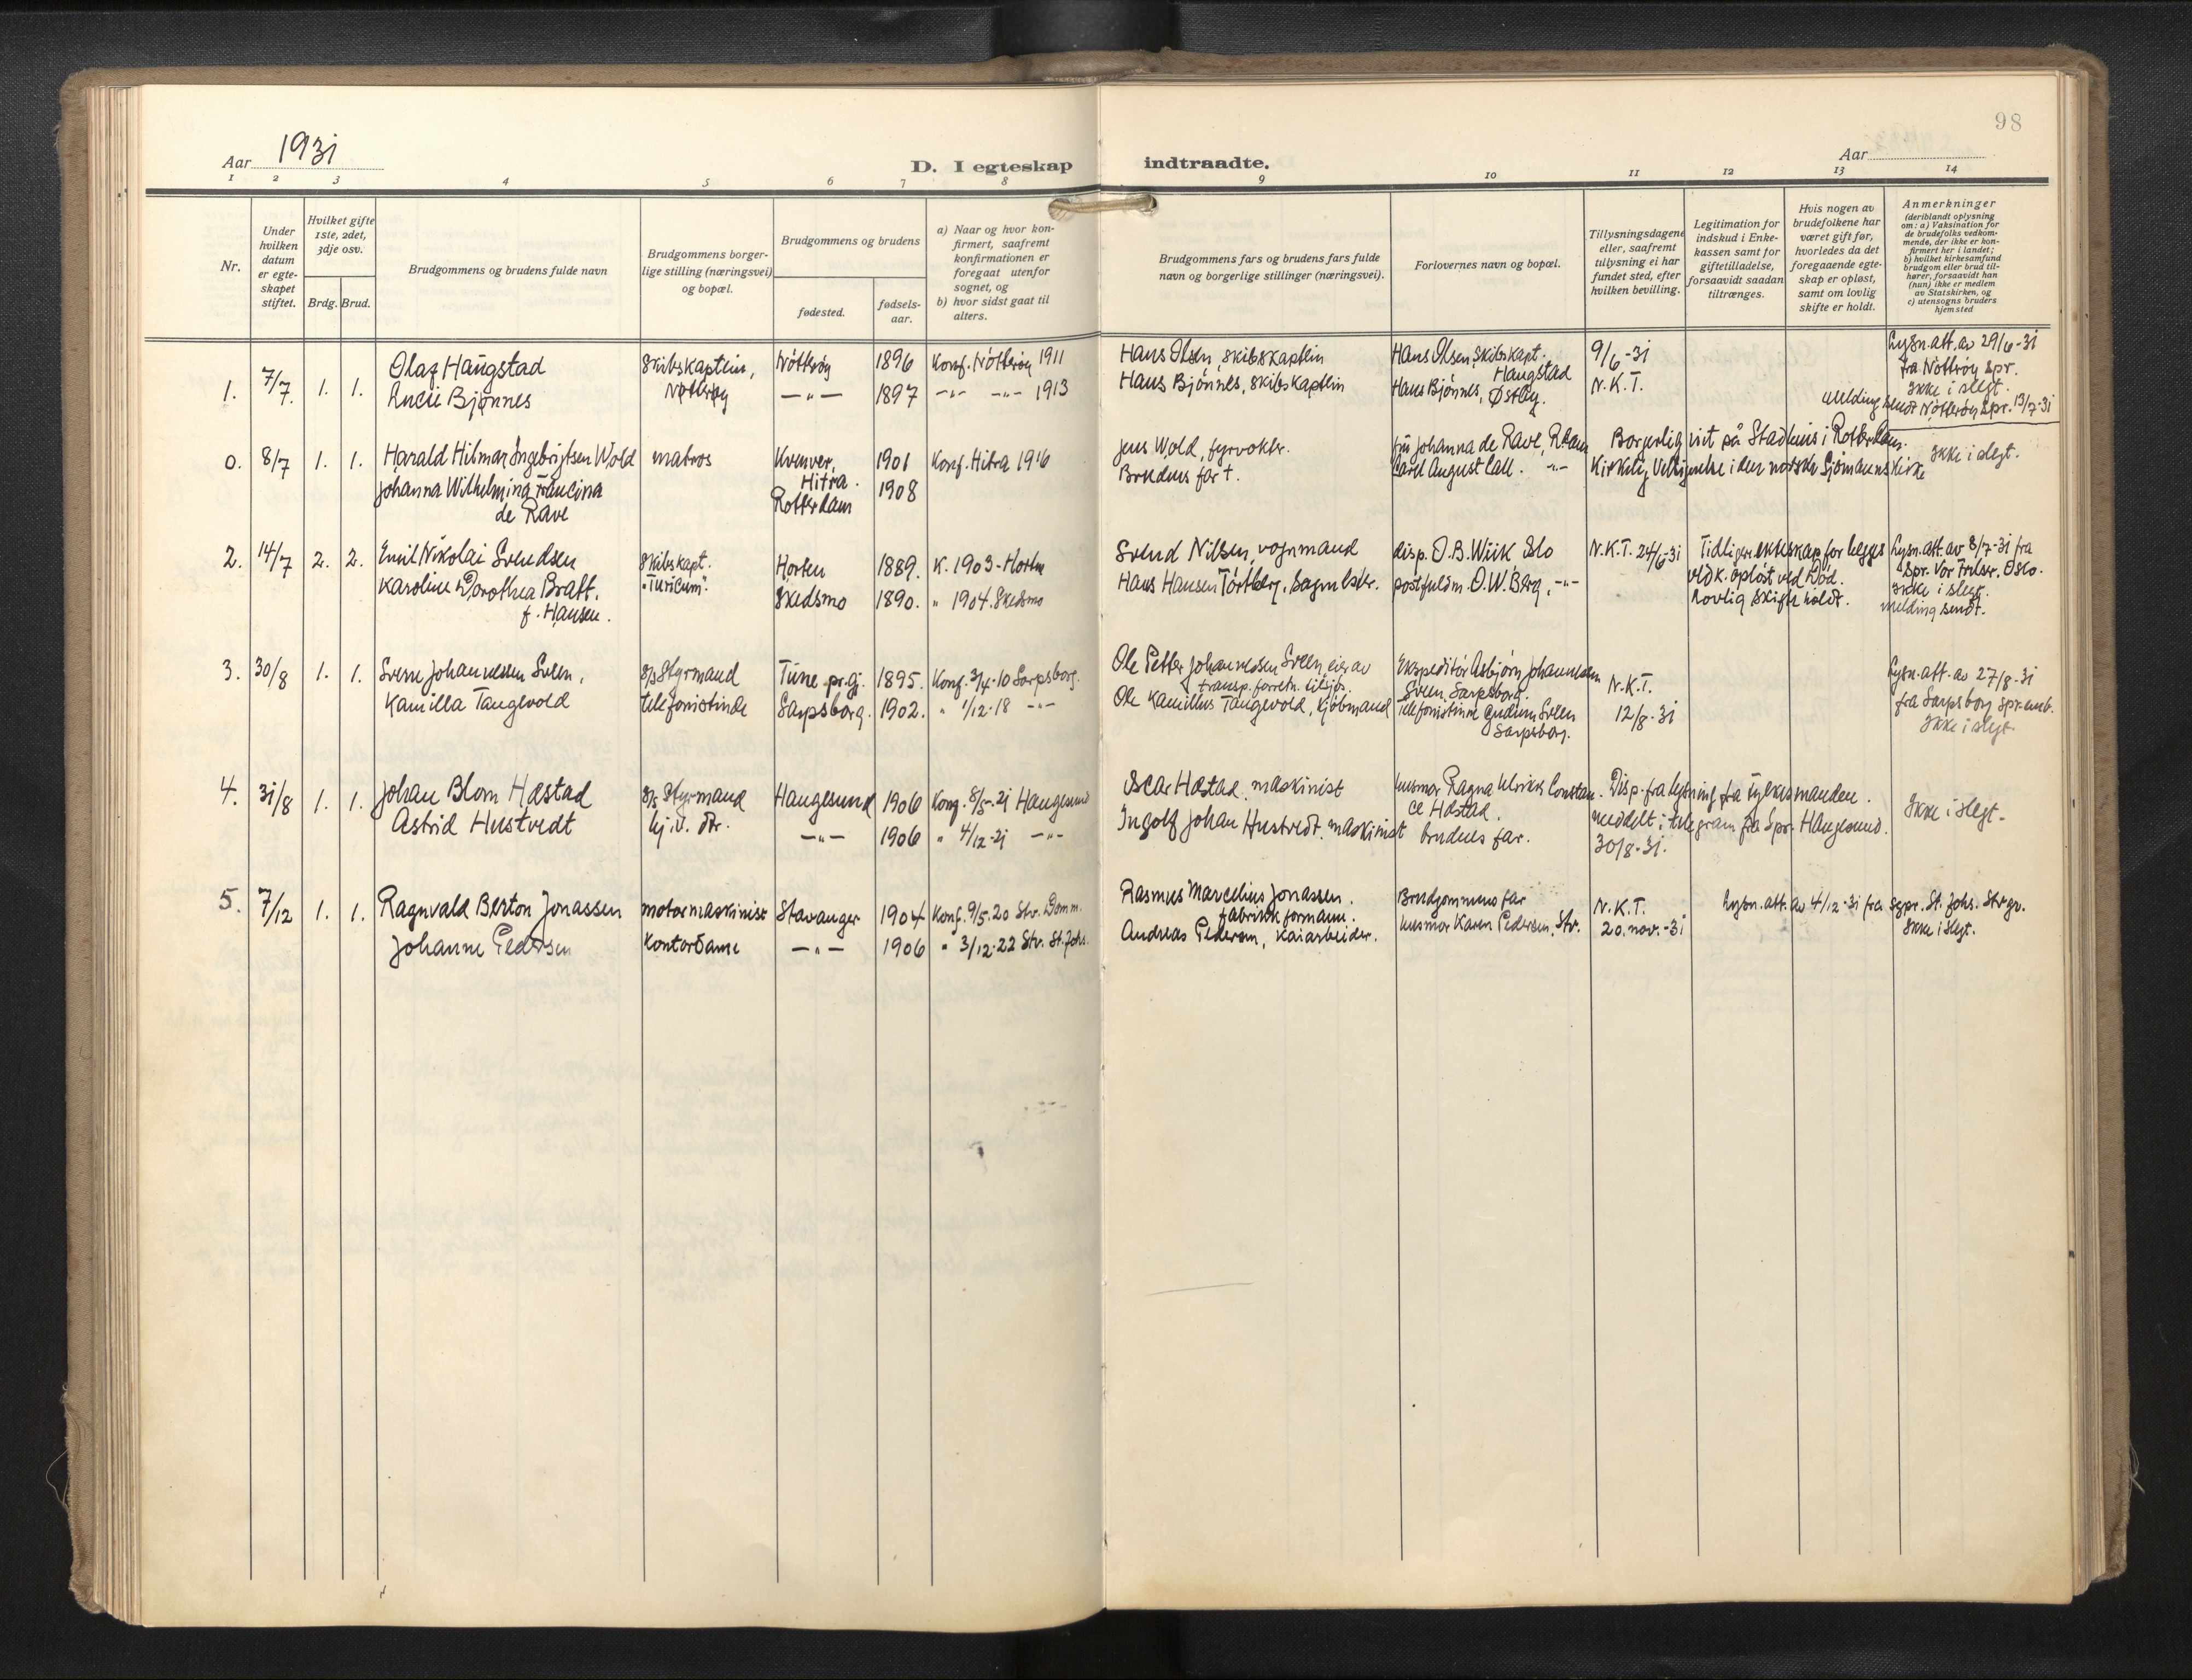 98
Aar 1931
D. I egteskap indtraadte.
Aar
1 2 3 4 5 6 7 8 9 10 11 12 13 14
Nr.
Under hvilken datum er egte-skapet stiftet.
Hvilket gifte 1ste, 2det, 3dje osv.
Brdg. Brud.
Brudgommens og brudens fulde navn
Brudgommens borger-lige stilling (næringsvei) og bopæl.
Brudgommens og brudens
fødested.
fødsels-aar.
a) Naar og hvor kon-firmert, saafremt konfirmationen er foregaat utenfor sognet, og
b) hvor sidst gaat til alters.
Brudgommens fars og brudens fars fulde navn og borgerlige stillinger (næringsvei).
Forlovernes navn og bopæl.
Tillysningsdagene eller, saafremt tillysning ei har fundet sted, efter hvilken bevilling.
Legitimation for indskud i Enke-kassen samt for giftetilladelse, forsaavidt saadan tiltrænges.
Hvis nogen av brudefolkene har været gift før, hvorledes da det foregaaende egte-skap er opløst, samt om lovlig skifte er holdt.
Anmerkninger
(deriblandt oplysning om: a) Vaksination for de brudefolks vedkom-mende, der ikke er kon-firmert her i landet; b) hvilket kirkesamfund brudgom eller brud til-hører, forsaavidt han (hun) ikke er medlem av Statskirken, og c) utensogns bruders hjemsted
1. 7/7. 1. 1.
Olaf Haugstad
Lucie Bjønnes
Skibskaptein, Nøtterøy
Nøtterøy 1896 Konf. Nøtterøy 1911
—"— 1897 —"— —"— 1913
Hans Olsen, skibskaptein
Hans Bjönnes, skibskaptein
Hans Olsen, Skibskapt. Haugstad
Hans Bjönnes, Østby.
9/6-31
N.K.T.
Lysn.att. av 29/6-31
fra Nötteröy spr.
Ikke i slegt.
melding sendt Nötteröy spr. 13/7-31
0. 8/7 1. 1.
Harald Hilmar Ingebrigtsen Wold
Johanna Wilhelmina Francina
de Rave
matros
Kvenvær, Hitra. 1901 Konf. Hitra 1916
Rotterdam 1908
Jens Wold, fyrvokter.
Brudens far †.
fru Johanna de Rave, Rdam
Carl August Call. —"—
Borgerlig viet på Stadhuis i Rotterdam.
Kirkelig Velsignelse i den norske Sjömannskirke
Ikke i slegt.
2. 14/7 2. 2.
Emil Nikolai Svendsen
Karoline Dorothea Bratt.
f. Hansen.
Skibskapt.
"Turicum".
Horten 1889. K. 1903 - Horten
Skedsmo 1890. " 1904. Skedsmo
Svend Nilsen, vognmand
Hans Hansen Törtberg, Sagmester.
disp. O.B. Wiik Oslo
postfuldm. O.W. Berg. —"—
N.K.T. 24/6-31
Tidligere ekteskap for begges
vedk. oplöst ved Död.
Lovlig skifte holdt.
Lysn.att. av 8/7-31 fra
Spr. Vor Frelser. Oslo.
Ikke i slegt.
melding sendt.
3. 30/8 1. 1.
Sverre Johannessen Sveen,
Kamilla Tangevold
Styrmand
telefonistinde
Tune pr.gj. 1895. Konf. 3/4-10 Sarpsborg.
Sarpsborg. 1902. " 1/12-18 —"—
Ole Petter Johannessen Sveen, eier av
transp. forretn.
Ole Kamillus Tangevold, Kjöbmand
Ekspeditör Asbjörn Johannessen
Sveen, Sarpsborg.
Telefonistinne Gudrun Sveen
Sarpsborg.
N.K.T.
12/8-31
Lysn.att. av 27/8-31
fra Sarpsborg spr.emb.
Ikke i slegt.
4. 31/8 1. 1.
Johan Blom Hæstad
Astrid Hustvedt
Styrmand
hj.v. dtr.
Haugesund 1906 Konf. 8/5-21 Haugesund
—"— 1906 " 4/12-21 —"—
Oscar Hæstad, maskinist
Ingolf Johan Hustvedt, maskinist
husmor Ragna Ulrikke Constan-
ce Hæstad.
brudens far.
Disp. fra lysning fra Fylkesmanden.
meddelt i telegram fra Spr. Haugesund.
30/8-31.
Ikke i slegt.
5. 7/12 1. 1.
Ragnvald Berton Jonassen
Johanne Pedersen
motormaskinist
Kontordame
Stavanger 1904 Konf. 9/5-20 Stv. Domk.
—"— 1906 " 3/12-22 Stv. St. Johs.
Rasmus Marcelius Jonassen.
fabrikkformann.
Andreas Pedersen, Kaiarbeider.
Brudgommens far
husmor Karen Pedersen, Stv.
N.K.T.
20. nov.-31
Lysn.att. av 4/12-31 fra sgpr. St. Johs. Stvgr.
Ikke i slegt.